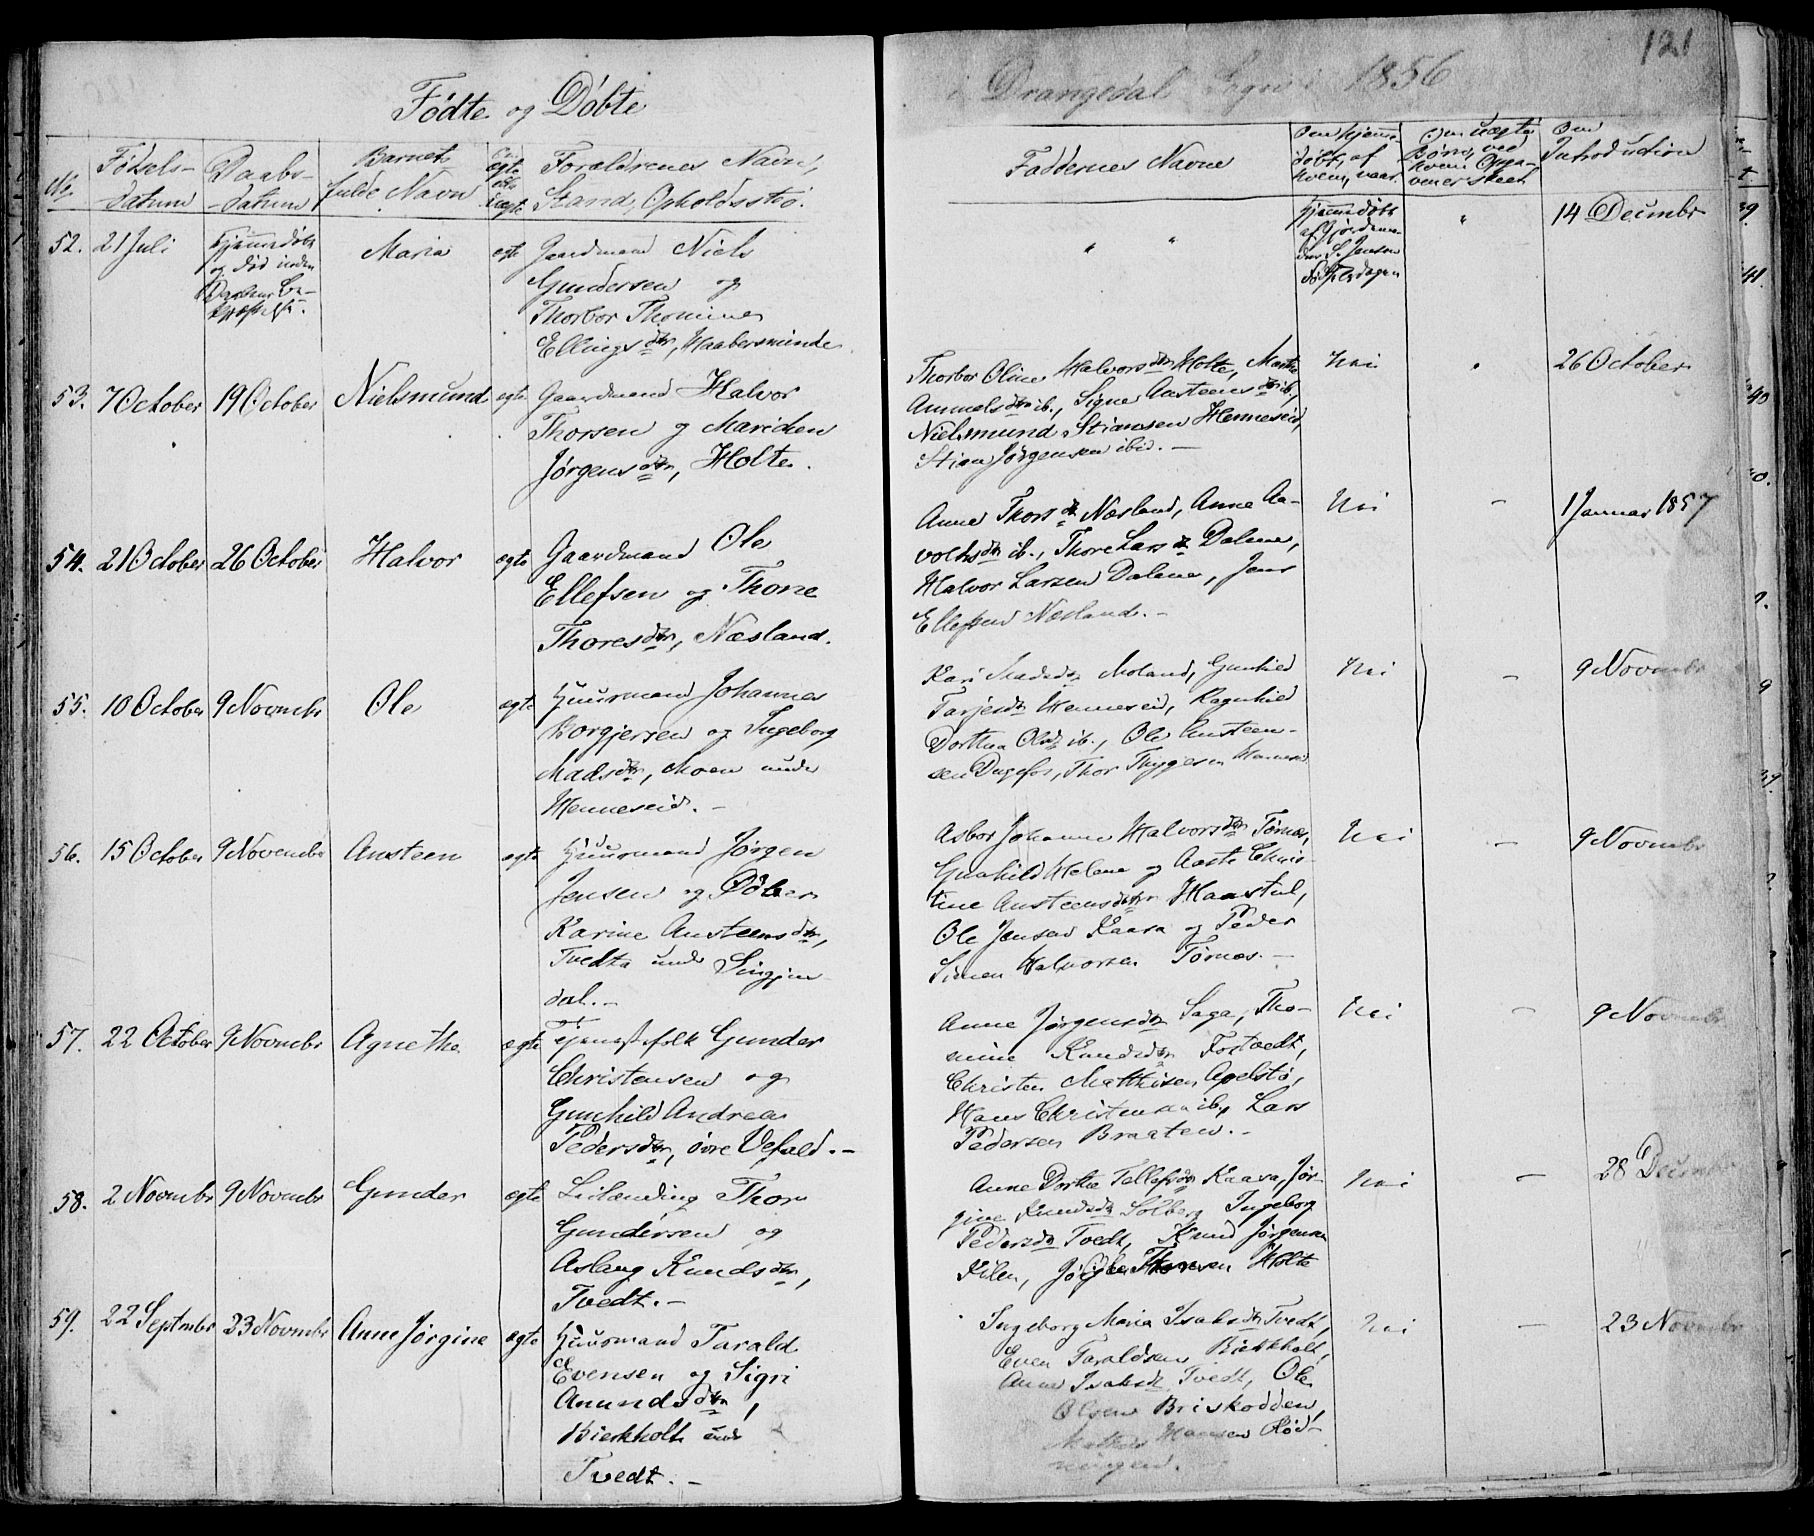 121
Fødte og Døbte
i Drangedal Sogn i 1856
No
Fødsels-
datum
Daabs-
datum
Barnets
fulde Navn
ægte
uægte
Forældrenes Navn,
Stand, Opholdssted.
Faddernes Navne
Om hjemme-
døbt, af
hvem, naar
Om uægte
Børn, ved
hvem Opga-
ven er skeet
Om
Introduction
52.
21 Juli
Hjemmedøbt
og død inden
Daabens Be-
kræftelse.
Maria
egte
Gaardmand Niels
Gundersen og
Thorbor Thomine
Ellingsdtr,
" "
Hjemmedøbt
af Gjordemo-
der S. Jensen
"
14 Decembr
53.
7 October
19 October
Nielsmund
egte
Gaardmand Halvor
Thorsen og Maricken
Jørgensdtr, Holte.
Thorbor Oline Halvorsdtr Holte, Marthe
ib., Signe Austeensdtr ib.,
Nielsmund Stiansen Henneseid,
Stian Jørgensen ibid. -
Nei
26 October
54.
21 October
26 October
Halvor
ægte
Gaardmand Ole
Ellefsen og Thorne
Thoresdtr, Næsland.
Anne Thorsdtr Næsland, Anne Aa-
volhsdtr ib., Thore Larsdtr Dalene,
Halvor Larsen Dalene, Jens
Ellefsen Næsland. -
Nei
-
1 Januar 1857
55.
10 October
9 Novembr
Ole
ægte
Huusmand Johannes
Borgjersen og Ingeborg
Madsdtr, Moen under
Henneseid. -
Kari Madsdtr Moland, Gunhild
Tarjesdtr Henneseid, Ragnhild
Dorthea Olsdtr ib., Ole Austeen-
sen Dugefos, Thor Thyggesen Henneseid
Nei
-
9 Novembr
56.
15 October
9 November
Austeen
ægte
Huusmand Jørgen
Jensen og
Karine Austeensdtr,
Tvedta under
dal. -
Asbor Johanne Halvorsdtr Tørnes,
Gunhild Helene og Aaste Chris-
tine Austeensdtr Haastul,
Ole Jensen Kaasa og Peder
Simen Halvorsen Tørnes. -
Nei
-
9 Novembr
57.
22 October
9 Novembr
Agnethe
ægte
Tjenestefolk Gunder
Christensen og
Gunhild Andrea
Pedersdtr, øvre Vefald. -
Anne Jørgensdtr Saga, Tho-
mine Knudsdtr Fostvedt,
Christen Matthisen Apelstø,
Hans Christensen ib., Lars
Pedersen Braaten. -
Nei
-
9 Novembr
58.
2 Novembr
9 Novembr
Gunder
ægte
Leilænding Thor
Gundersen og
Aslaug Knudsdtr,
Tvedt. -
Anne Dorthe Tellefsdtr Kaasa, Jør-
gine Knudsdtr Solberg, Ingeborg
Pedersdtr Tvedt, Knud Jørgensen
Kilen, Thorsen Holte
Nei
-
28 Decembr
59.
22 Septembr
23 Novembr
Anne Jørgine
ægte
Huusmand Tarald
Evensen og Sigri
Amundsdtr,
Bierkholt under
Tvedt. -
Ingeborg Maria Isaksdtr Tvedt,
Even Taraldsen Bierkholt,
Anne Isaksdtr Tvedt, Ole
Olsen Briskodden,
Mathis Hansen Rød-
ningen.
Nei
-
23 Novembr